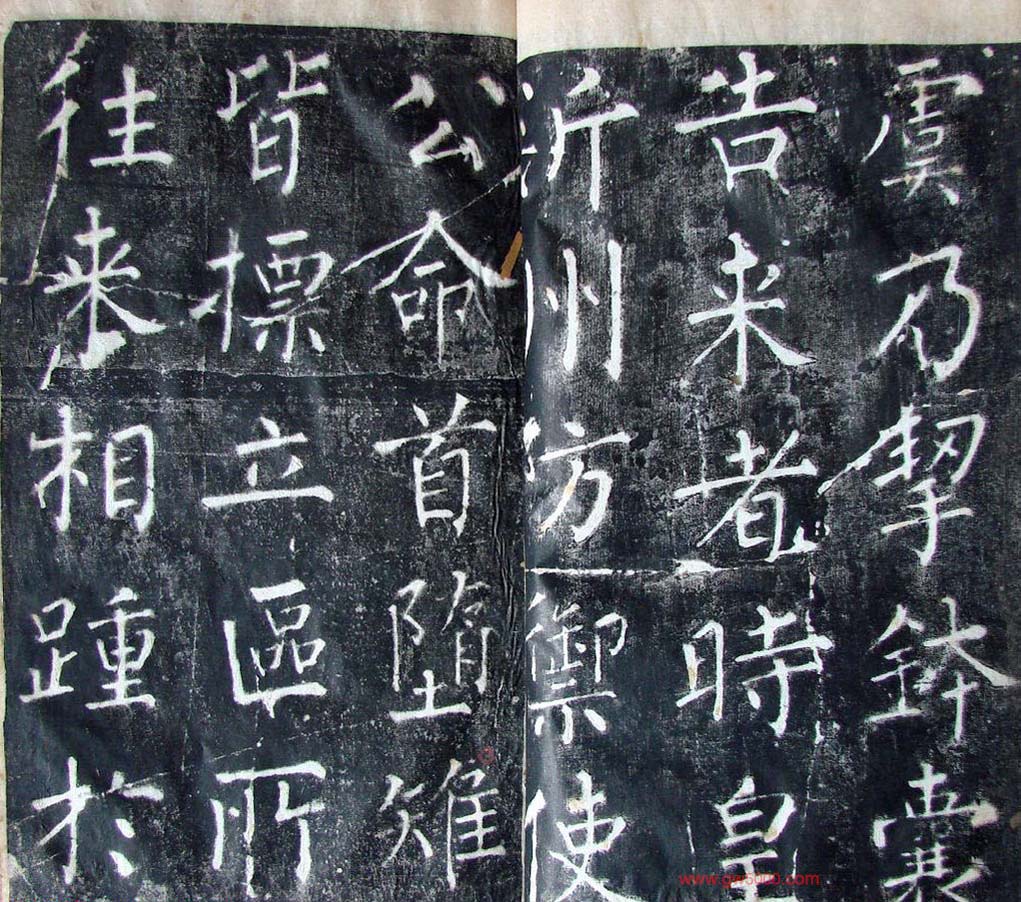 虞乃挈鉢囊
告来者時皇
沂州防禦使
公命首墮雉
皆標立區所
往来相踵於
www.gw5000.com